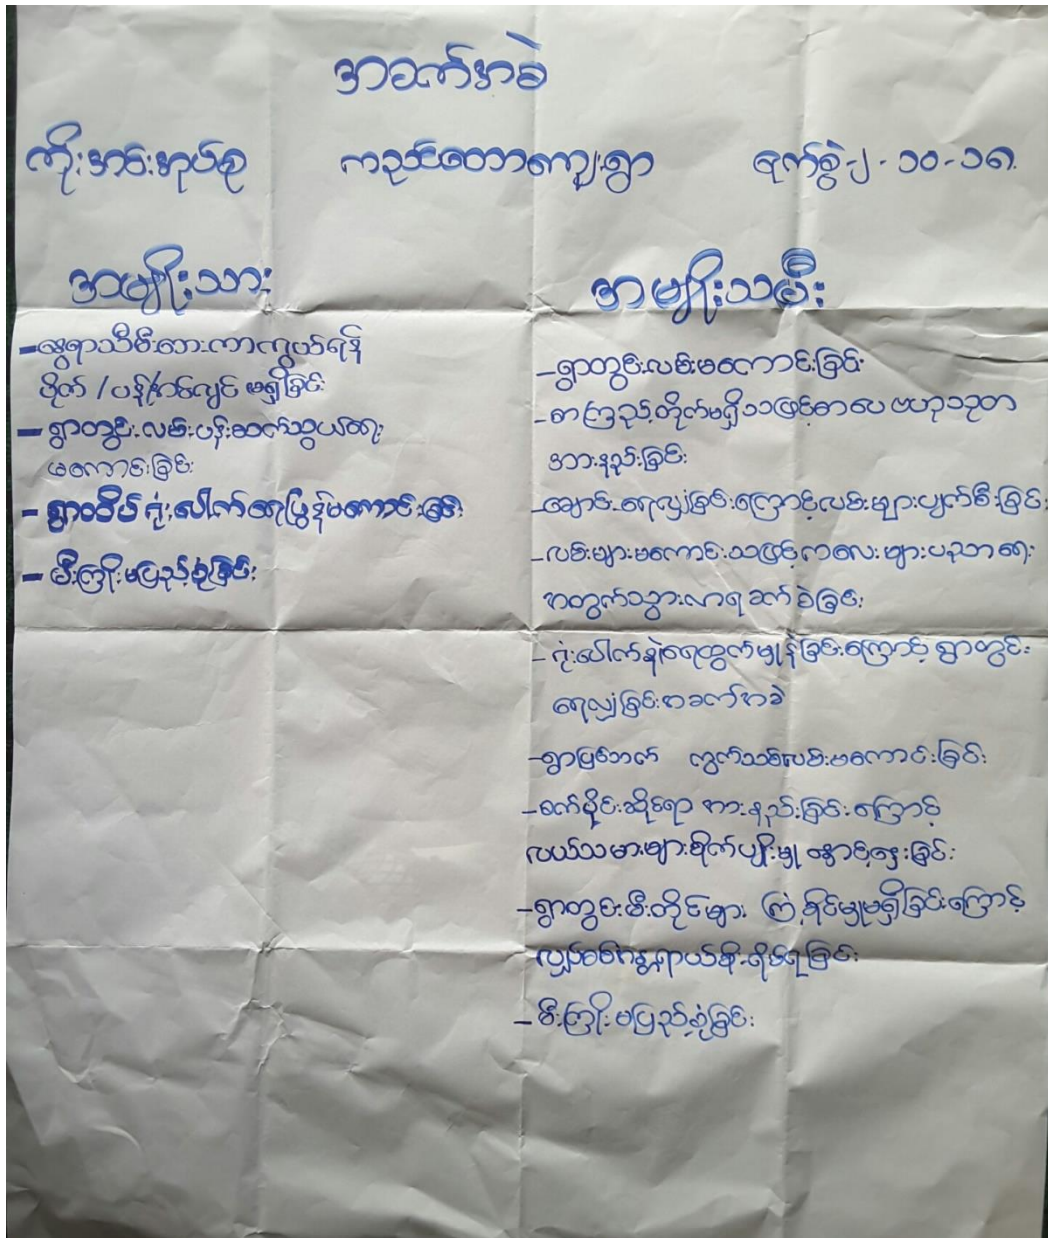 အခက်အခဲ
ကိုးအင်းအုပ်စု ကညင်တောကျေးရွာ ရက်စွဲ-၂-၁၀-၁၈
အမျိုးသား
-နွေရာသီမီးဘေးကာကွယ်ရန်
ပိုက် / ပန့် မရှိခြင်း
- ရွာတွင်းလမ်းပန်းဆက်သွယ်ရေး
မကောင်းခြင်း
- ရွာထိပ် ဂုံးပေါက်ရေပြွန်မကောင်းခြင်း
- မီးကြိုးမပြည့်စုံခြင်း
အမျိုးသမီး
-ရွာတွင်းလမ်းမကောင်းခြင်း
-စာကြည့်တိုက်မရှိသဖြင့်စာပေ ဗဟုသုတ
အားနည်းခြင်း
-ချောင်းရေလျှံခြင်းကြောင့်လမ်းများပျက်စီးခြင်း
-လမ်းများမကောင်းသဖြင့်ကလေးများပညာရေး
အတွက်သွားလာရခက်ခဲခြင်း
- ဂုံးပေါက်နဲ့ရေထွက်မှုနှိမ့်ခြင်းကြောင့် ရွာတွင်း
ရေလျှံခြင်းအခက်အခဲ
-ရွာမြောက် ကွက်သစ်လမ်းမကောင်းခြင်း
-စက်ပိုင်းဆိုင်ရာ အားနည်းခြင်းကြောင့်
လယ်သမားများစိုက်ပျိုးမှု နှောင့်နှေးခြင်း
-ရွာတွင်းမီးတိုင်များ ကြံ့ခိုင်မှုမရှိခြင်းကြောင့်
လျှပ်စစ်အန္တရာယ်စိုးရိမ်ရခြင်း
-မီးကြိုးမပြည့်စုံခြင်း